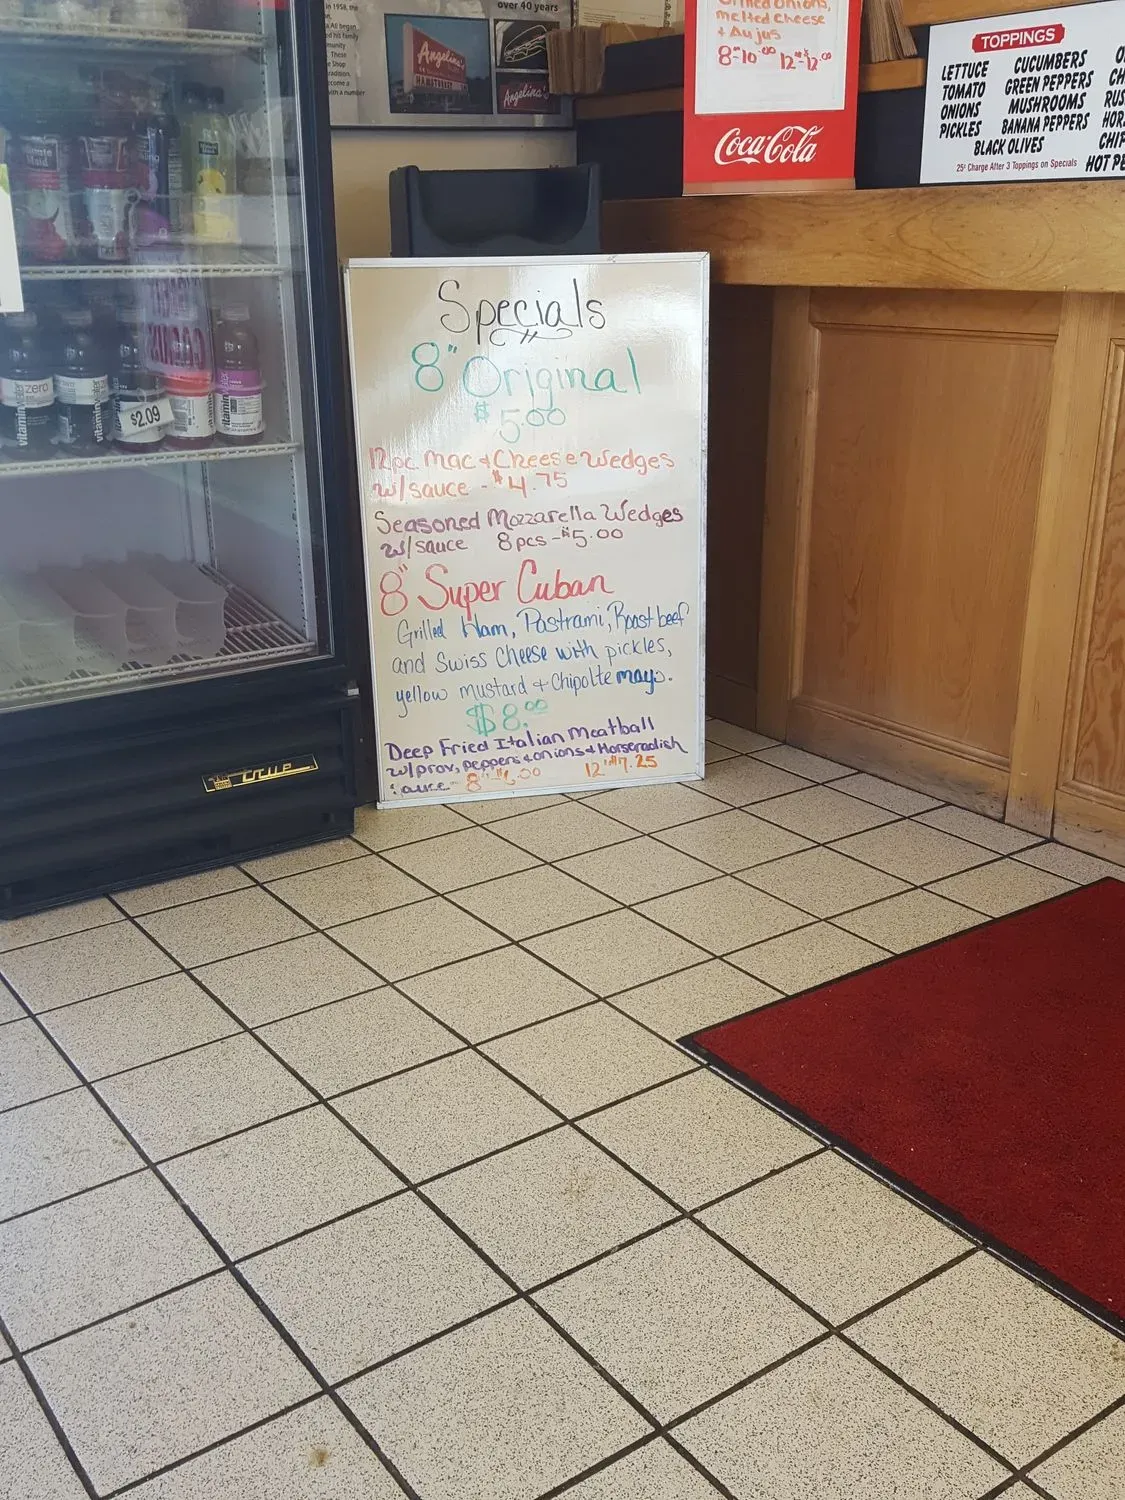 in 1958, the
Ali began
ed his family
mmunity
These
e Shop
radition.
ecome a
with a number
over 40 years
Angelina's
Angelina's
melted cheese
+ Au jus
8"-10.00 12"-12.00
Coca-Cola
TOPPINGS
LETTUCE
TOMATO
ONIONS
PICKLES
CUCUMBERS
GREEN PEPPERS
MUSHROOMS
BANANA PEPPERS
BLACK OLIVES
25¢ Charge After 3 Toppings on Specials
HOT PE
zero
vitamin
vitamin
$2.09
vitamin
Specials
8" Original
$5.00
12pc Mac & Cheese Wedges
w/sauce - $4.75
Seasoned Mozzarella Wedges
w/sauce 8pcs - $5.00
8" Super Cuban
Grilled Ham, Pastrami, Roast beef
and Swiss Cheese with pickles,
yellow mustard + Chipolte mayo.
$8.00
Deep Fried Italian Meatball
w/prov, peppers & onions & Horseradish
sauce - 8"-$6.00 12"$7.25
true